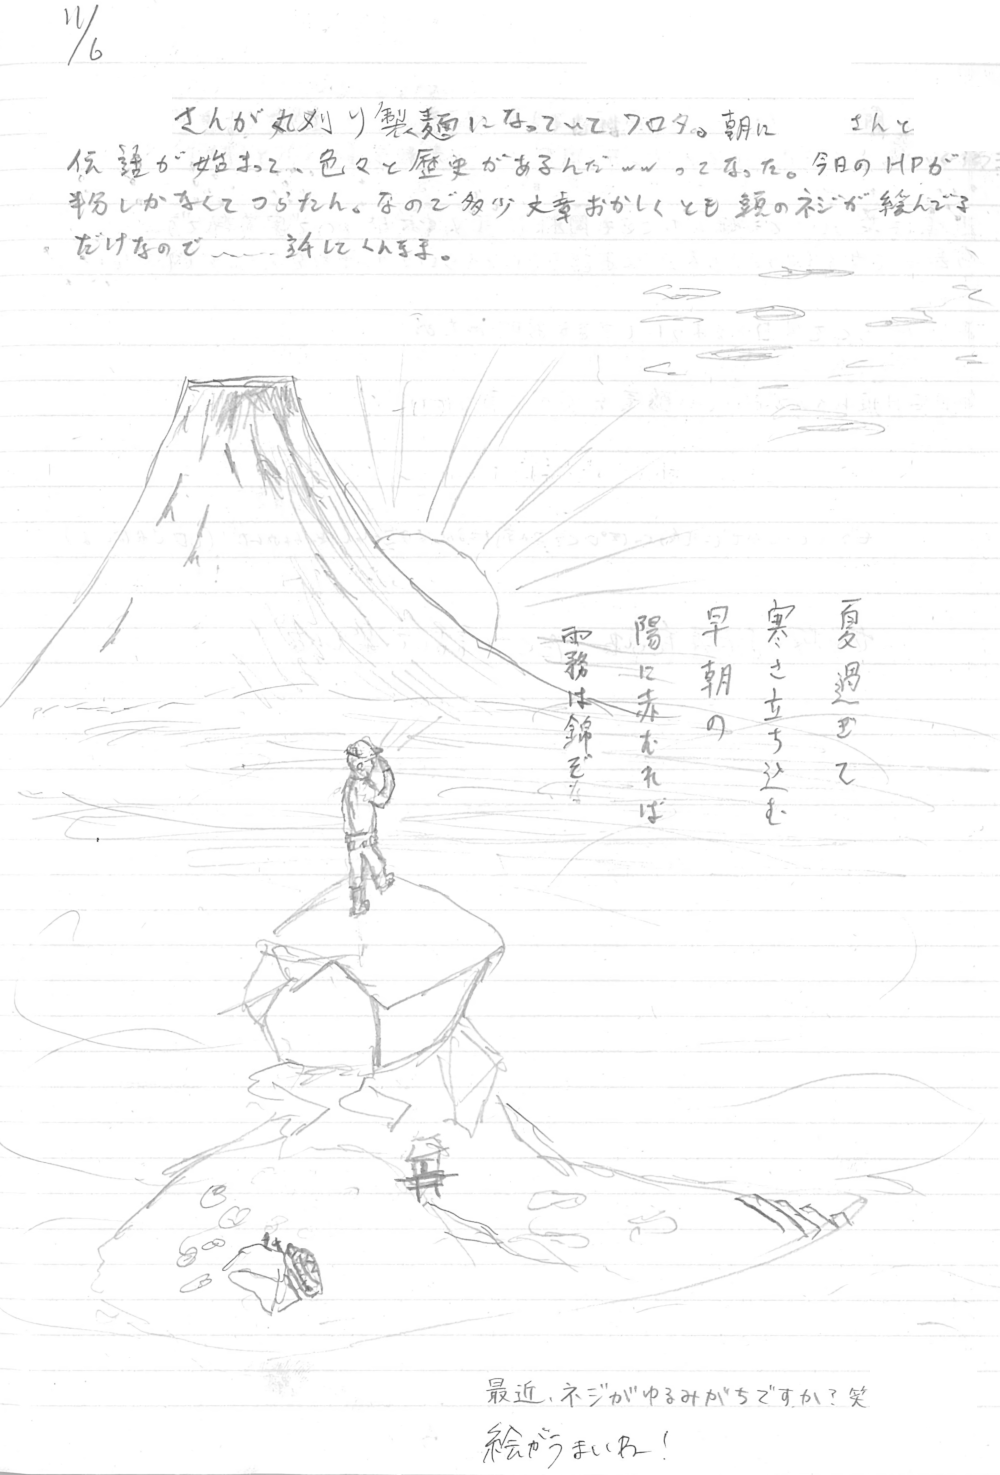 11/6
さんが丸刈り製麺になっていてワロタ。朝に さんと
伝説が始まって、色々と歴史があるんだwwってなった。今日のHPが
半分しかなくてつらたん。なので多少文章おかしくとも頭のネジが緩んでる
だけなので〜〜許してくんまま。
夏過ぎて
寒さ立ち込む
早朝の
陽に赤むれば
霧は錦ぞ
最近、ネジがゆるみがちですか？笑
絵がうまいね！